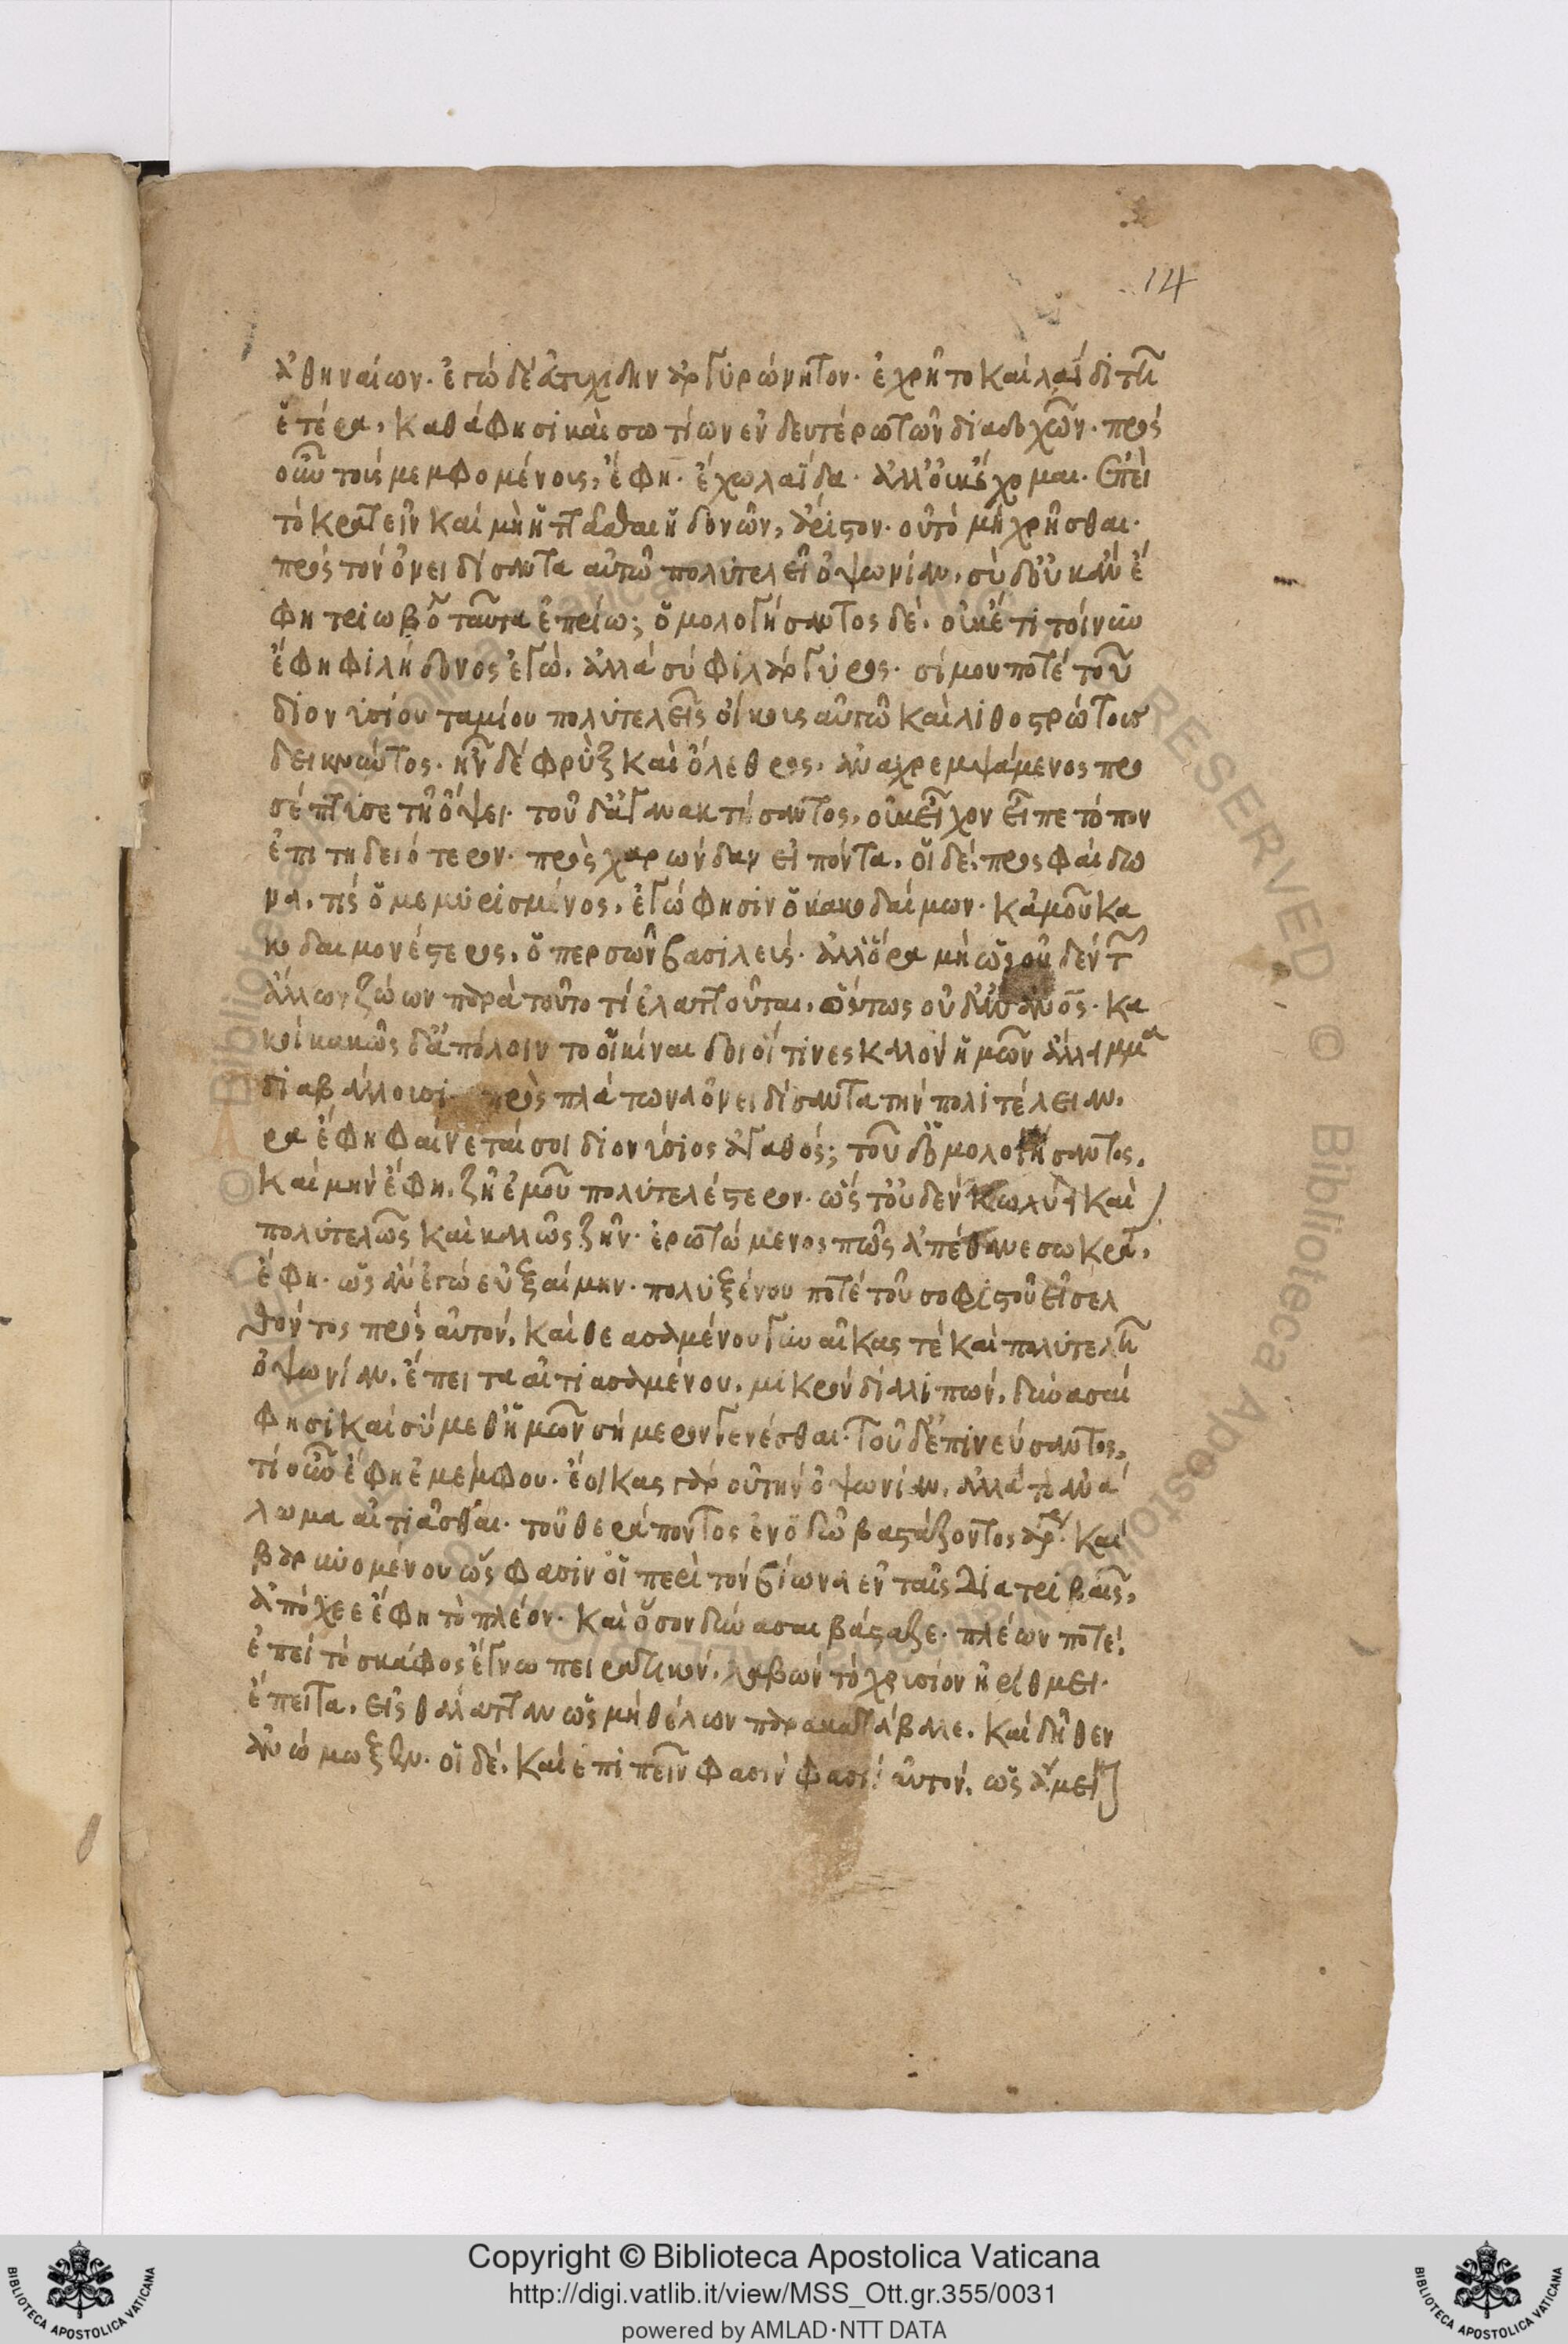 14
ἀθηναίων. ἐγὼ δέ ἀτιχίδην ἀργυρώνητον. ἐχρῆτο καί λαΐδι τῆ
ἑτέρα, καθά φησί καὶ σωτίων ἐν δευτέρω τῶν διαδοχῶν. πρός
οὖν τοὺς μεμφομένοις, ἔφη. ἔχω λαΐδα. ἀλλ' οὐκ ἔχομαι. ἐπεὶ
τὸ κρατεῖν καί μὴ ἡττᾶσθαι ἡδονῶν, ἄριστον. οὐ τὸ μὴ χρῆσθαι.
πρός τον ὀνειδίσαντα αὐτῶ πολυτελεῖ ὀψωνίαν, σὺ δ' οὐκ ἀν ἔ
φη τριωβό ταῦτα ἐπρίω; ὁμολογήσαντος δέ. οὐκέτι τοίνυν
ἔφη φιλήδονος ἐγώ. ἀλλά σύ φιλάργυρος. σίμου ποτέ τοῦ
διονυσίου ταμίου πολυτελεῖς οἴκους αὐτῶ καὶ λιθοστρώτους
δεικνύντος. ἦν δέ φρὺξ καὶ ὄλεθρος. ἀναχρεμψάμενος προ
σέπτυσε τῆ ὄψει. τοῦ δ' ἀγανακτήσαντος, οὐκ εἶχον εἶπε τόπον
ἐπιτηδειότερον. πρὸς χαρώνδαν εἰπόντα, οἱ δέ, πρός φαίδω
να, τίς ὁ μεμυρισμένος, ἐγώ φησίν ὁ κακοδαίμων. κἀμοῦ κα
κοδαιμονέστερος, ὁ περσῶν βασιλεύς. ἀλλ' ὅρα μὴ ὡς οὐδέν τ
ἄλλων ζώων παρὰ τοῦτο τί ἐλαττοῦται, οὕτως οὐδ' ἂν ἀνος. κα
κοί κακῶς δ' ἀπόλοιντο οἱ κίναιδοι οἵτινες καλόν ἡμῶν ἄλλειμμα
διαβάλλουσι. πρὸς πλάτωνα ὀνειδίσαντα τὴν πολυτέλειαν.
ρα ἔφη φαίνεταί σοι διονύσιος ἀγαθός; τοῦ δ' ὁμολογήσαντος.
καί μὴν ἔφη. ζῆ ἐμοῦ πολυτελέστερον. ὡς τ' οὐδέν κωλύει καὶ
πολυτελῶς καὶ καλῶς ζῆν. ἐρωτώμενος πῶς ἀπέθανε σωκρά,
ἔφη. ὡς ἀν ἐγώ εὐξαίμην. πολυξένου ποτέ τοῦ σοφιστοῦ εἰσελ
θόντος πρός αὐτόν, καί θεασαμένου γυναῖκας τέ καί πολυτελῆ
ὀψωνίαν. ἔπειτα αἰτιασαμένου. μικρόν διαλιπών. δύνασαί
φησί καί σύ μεθ' ἡμῶν σήμερον γενέσθαι. τοῦ δ' ἐπινεύσαντος,
τί οὖν ἔφη ἐμέμφου. ἔοικας γάρ οὐ τήν ὀψωνίαν. ἀλλά τὸ ἀνά
λωμα αἰτιᾶσθαι. τοῦ θεράποντος ἐν ὁδῶ βαστάζοντος ἀργ. καί
βαρυνομένου ὥς φασιν οἱ περὶ τόν βίωνα ἐν ταῖς διατριβαῖς,
ἀπόχεε ἔφη τὸ πλέον. καὶ ὅσον δύνασαι βάσταζε. πλέων ποτέ.
ἐπεί τό σκάφος ἔγνω πειρατικόν. λαβών τὸ χρυσίον ἠρίθμει.
ἔπειτα, εἰς θάλατταν ὡς μὴ θέλων παρακατέβαλε. καί δῆθεν
ἀνώμωξεν. οἱ δέ. καί ἐπιπεῖν φασίν φασί αὐτόν. ὡς ἄμει